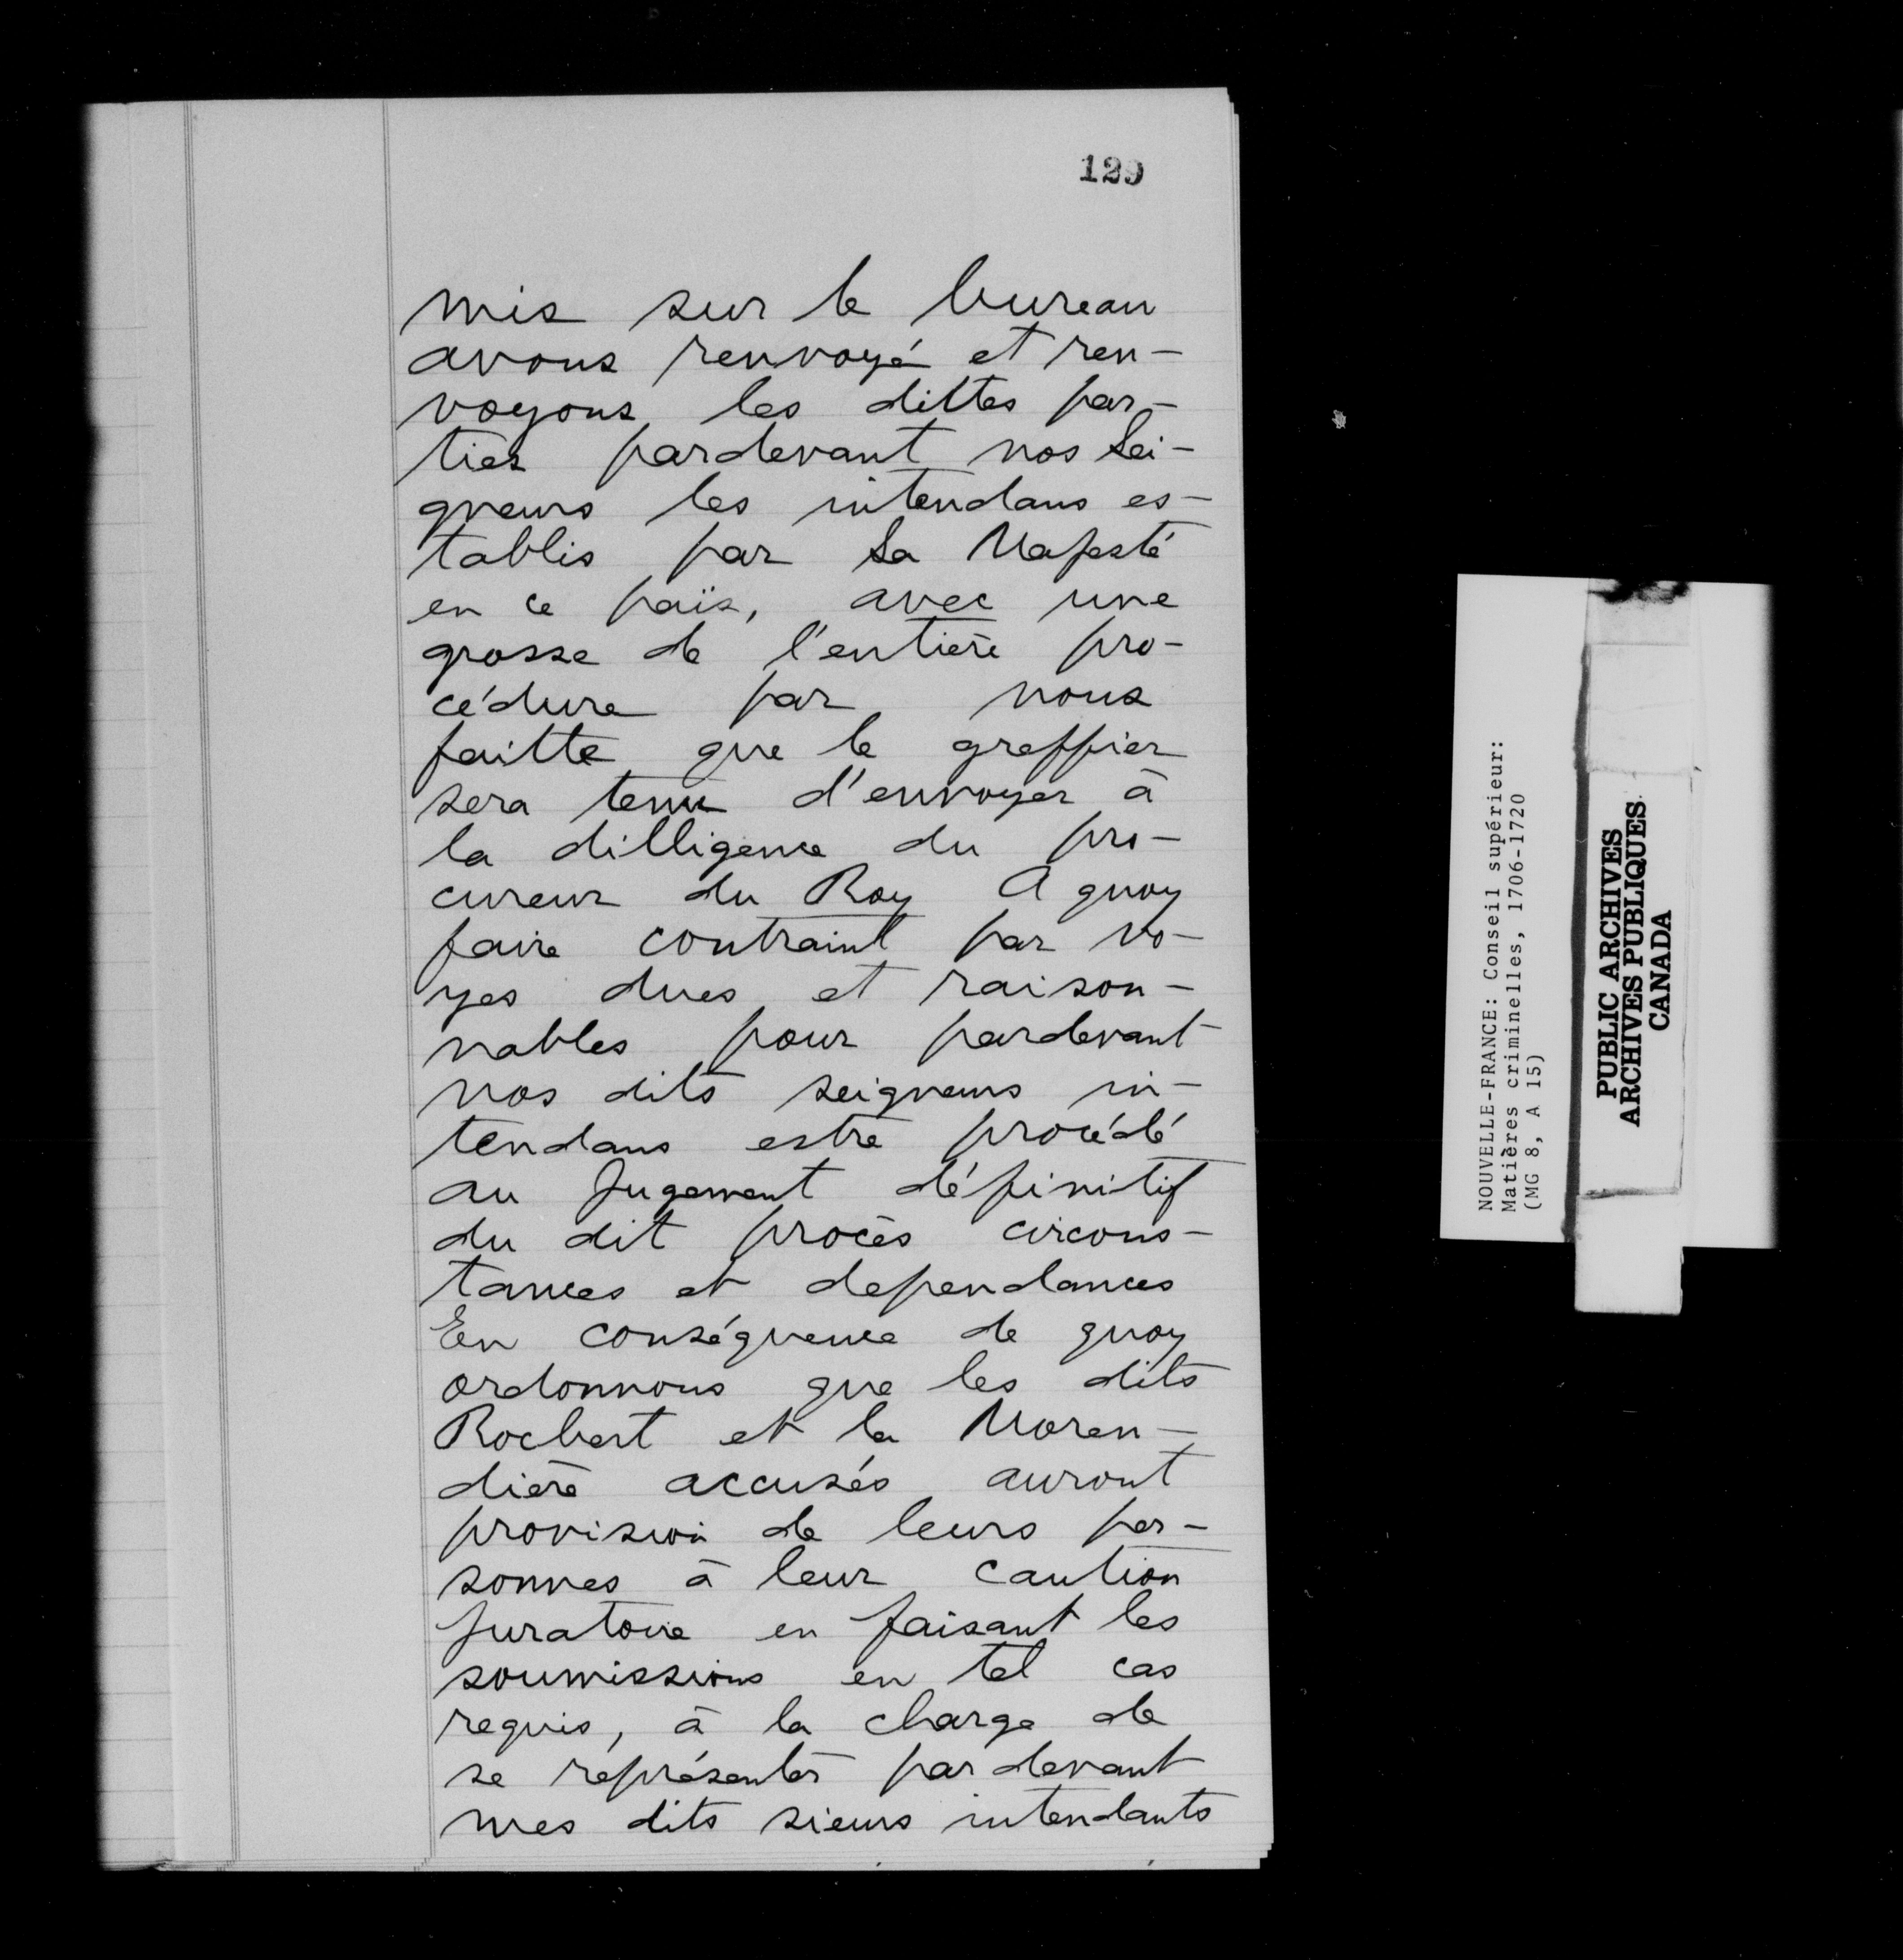 129
mis sur le bureau
avons renvoyé et ren-
voyons les dittes par-
ties pardevant nos Sei-
gneurs les intendans es-
tablis par Sa Majesté
en ce païs, avec une
grosse de l'entière pro-
cédure par nous
faitte que le greffier
sera tenu d'envoyer à
la dilligence du pro-
cureur du Roy A quoy
faire contraint par vo-
yes dues et raison-
nables pour pardevant
nos dits seigneurs in-
tendans estre procédé
au Jugement définitif
du dit procès circons-
tances et dependances
En conséquence de quoy
ordonnons que les dits
Rocbert et la Moren-
dière accusés auront
provision de leurs per-
sonnes à leur caution
juratoire en faisant les
soumissions en tel cas
requis, à la charge de
se représenter par devant
mes dits sieurs intendants
NOUVELLE-FRANCE: Conseil supérieur:
Matières criminelles, 1706-1720
(MG 8, A 15)
PUBLIC ARCHIVES
ARCHIVES PUBLIQUES
CANADA